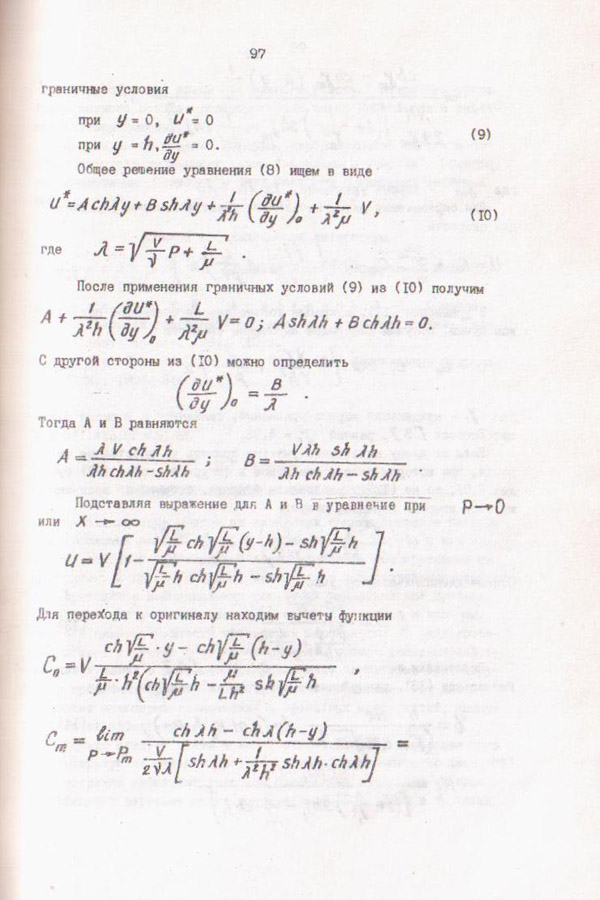 97
граничные условия
при y = 0, U* = 0
при y = h, ∂U*/∂y = 0. (9)
Общее решение уравнения (8) ищем в виде
U* = A chλy + B shλy + 1/(λ²h) (∂U*/∂y)₀ + 1/(λ²μ) V, (10)
где λ = √(V/√ P + L/μ) .
После применения граничных условий (9) из (10) получим
A + 1/(λ²h) (∂U*/∂y)₀ + L/(λ²μ) V = 0; A shλh + B chλh = 0.
С другой стороны из (10) можно определить
(∂U*/∂y)₀ = B/λ .
Тогда A и B равняются
A = λ V ch λh / (λh chλh - shλh) ; B = Vλh sh λh / (λh chλh - shλh)
Подставляя выражение для A и B в уравнение при P→0
или X → ∞
U = V [1 - (√(L/μ) ch√(L/μ)(y-h) - sh√(L/μ) h) / (√(L/μ) h ch√(L/μ) h - sh√(L/μ) h)] .
Для перехода к оригиналу находим вычеты функции
C₀ = V (ch√(L/μ) · y - ch√(L/μ) (h-y)) / (L/μ · h² (ch√(L/μ) h - μ/(Lh²) sh√(L/μ) h) ,
Cₘ = lim P→Pₘ (ch λh - chλ(h-y)) / (V/(2√λ) [shλh + 1/(λ²h²) shλh · chλh]) =